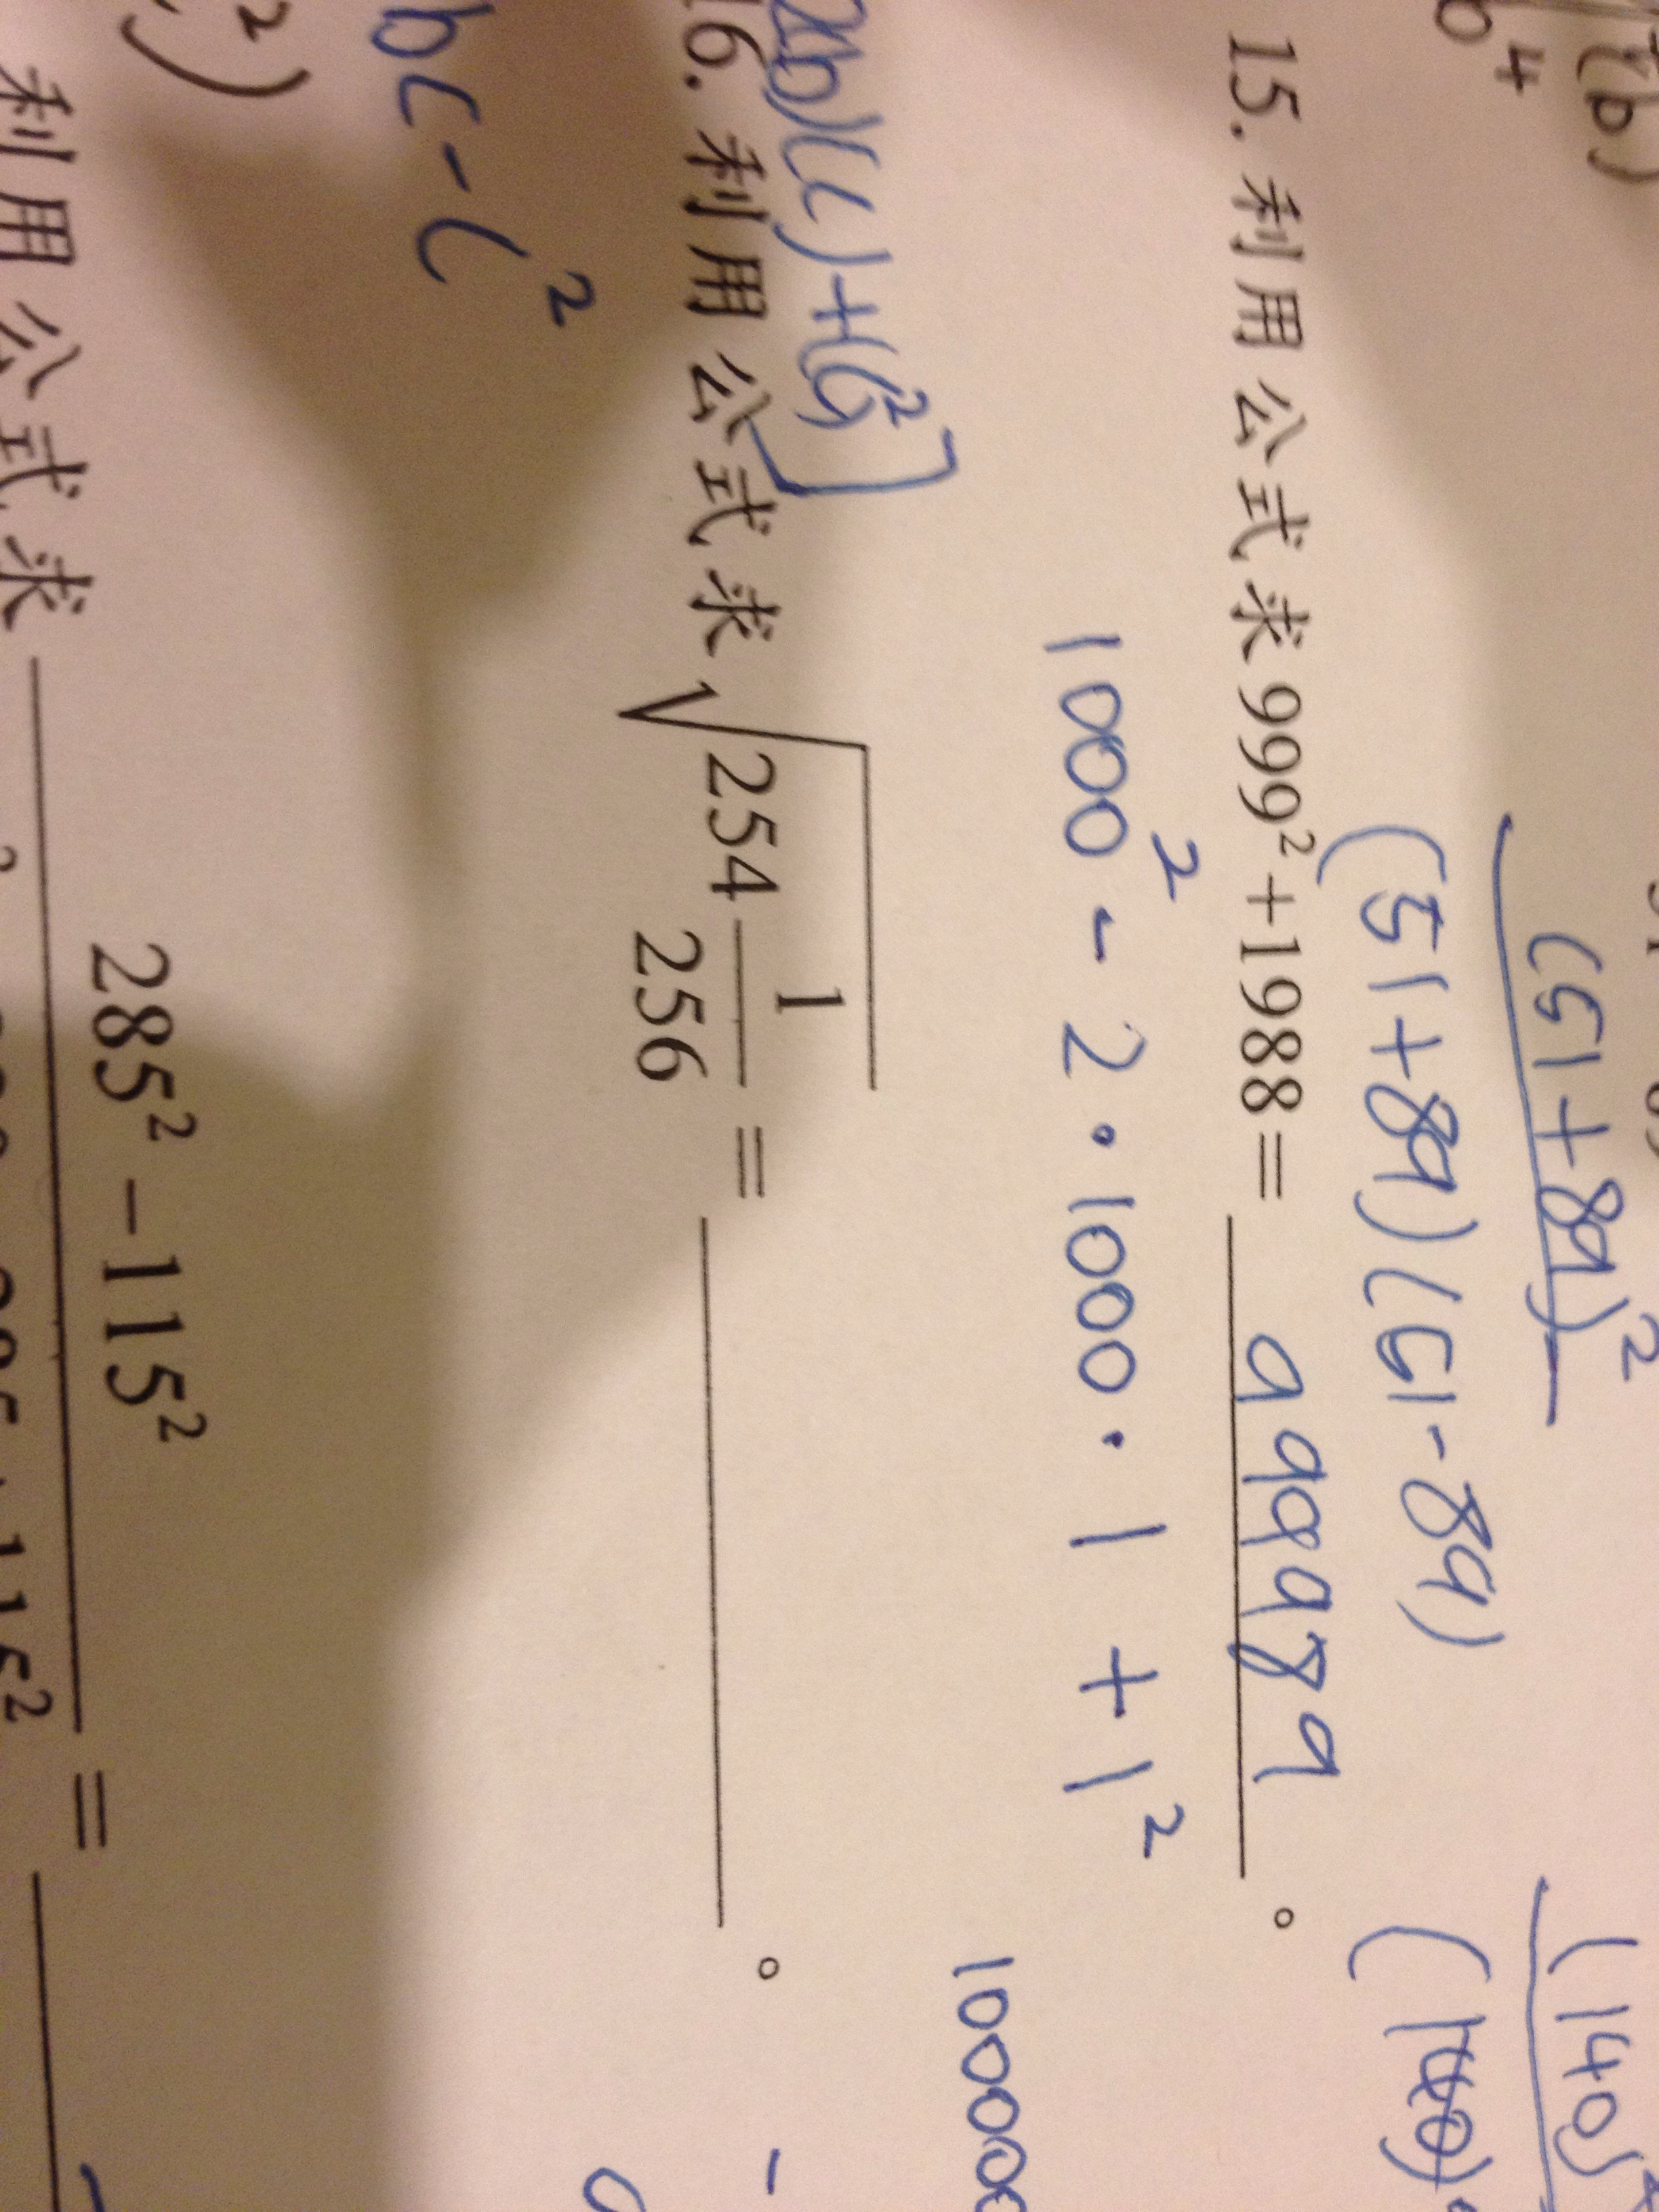 b⁴
(b)
(51+89)²
(140)²
(51+89)(51-89)
15. 利用公式求999²+1988= 999989。
1000² - 2·1000·1 + 1²
10000
2b)(c)+(c)²]
16. 利用公式求√254 1/256 = 。
bc-c²
²)
利用公式求 285²-115² =